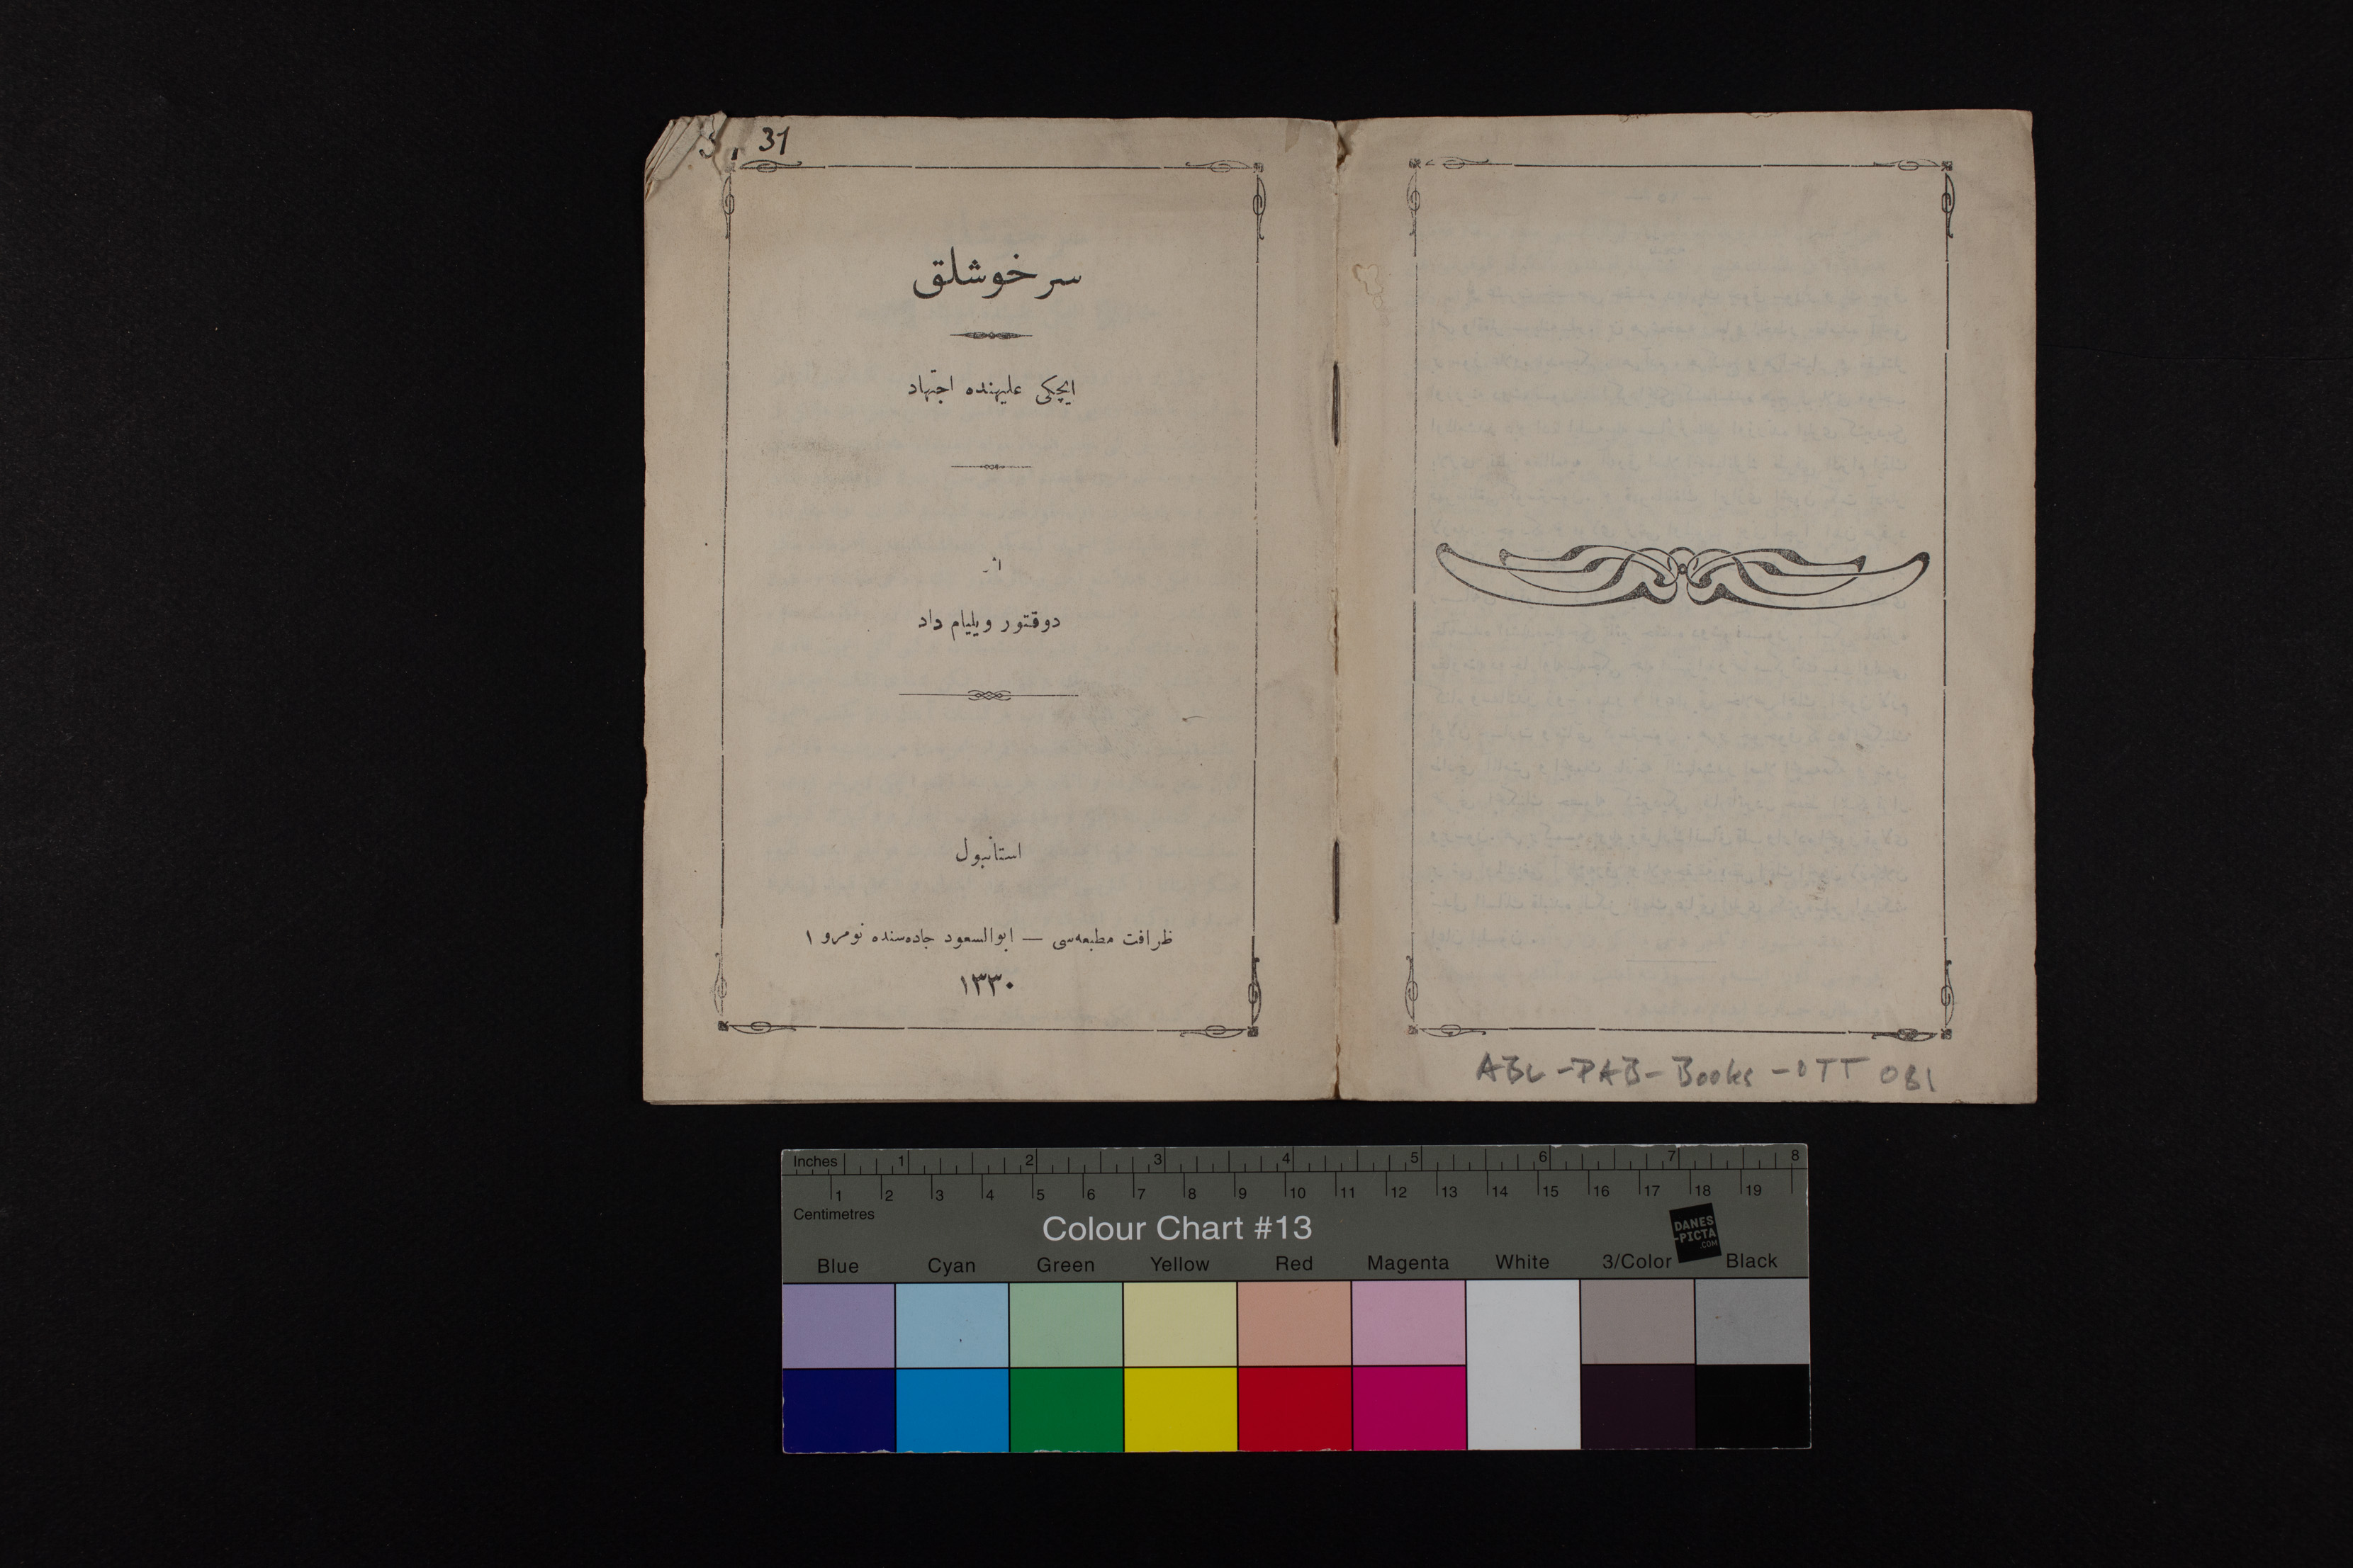 31
سرخوشلق
ایچکی علیهنده اجتهاد
دوقتور ویلیام داد
استانبول
ظرافت مطبعه‌سی — ابوالسعود جاده‌سنده نومرو ١
١٣٣٠
ABL-PAB-Books-OTT 081
Inches 1 2 3 4 5 6 7 8
1 2 3 4 5 6 7 8 9 10 11 12 13 14 15 16 17 18 19
Centimetres
Colour Chart #13
DANES
-PICTA
.COM
Blue Cyan Green Yellow Red Magenta White 3/Color Black